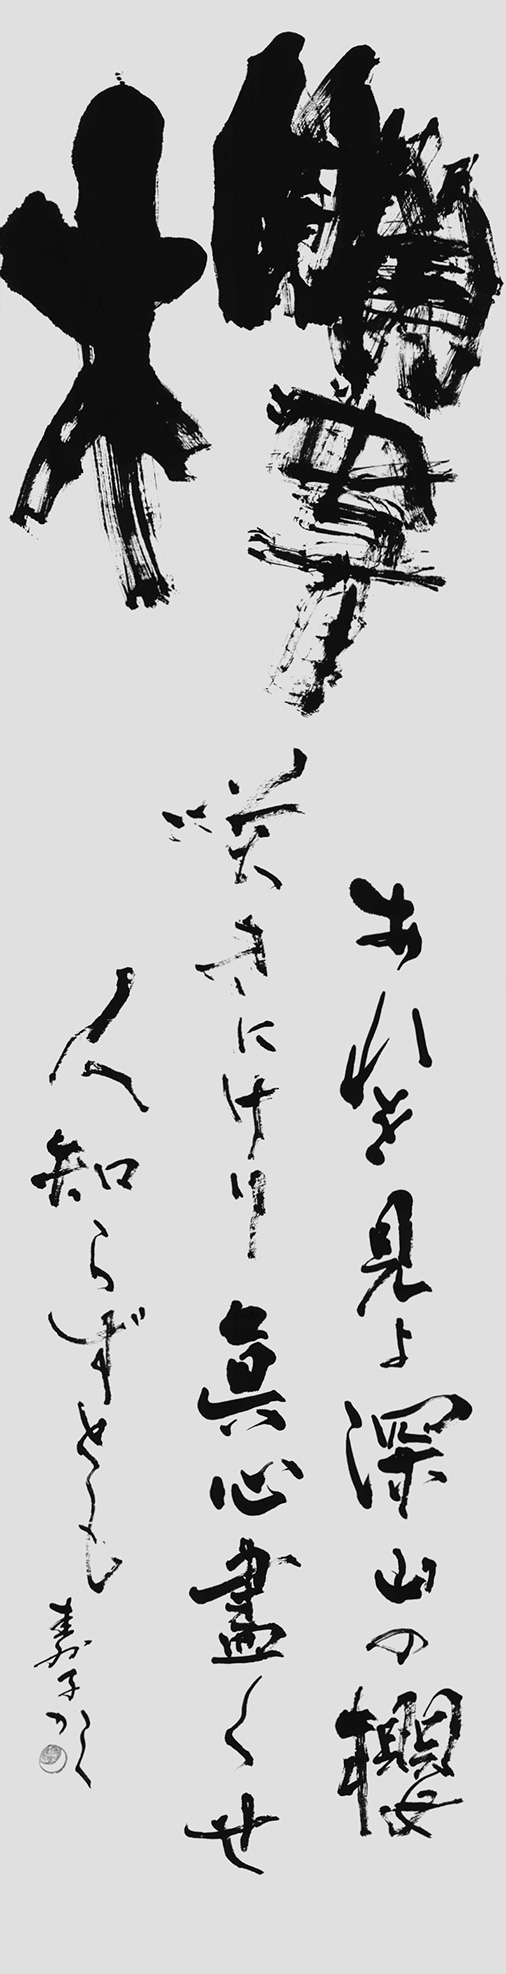 櫻
あれを見よ深山の櫻
咲きにけり真心盡くせ
人知らずとも
寿子かく